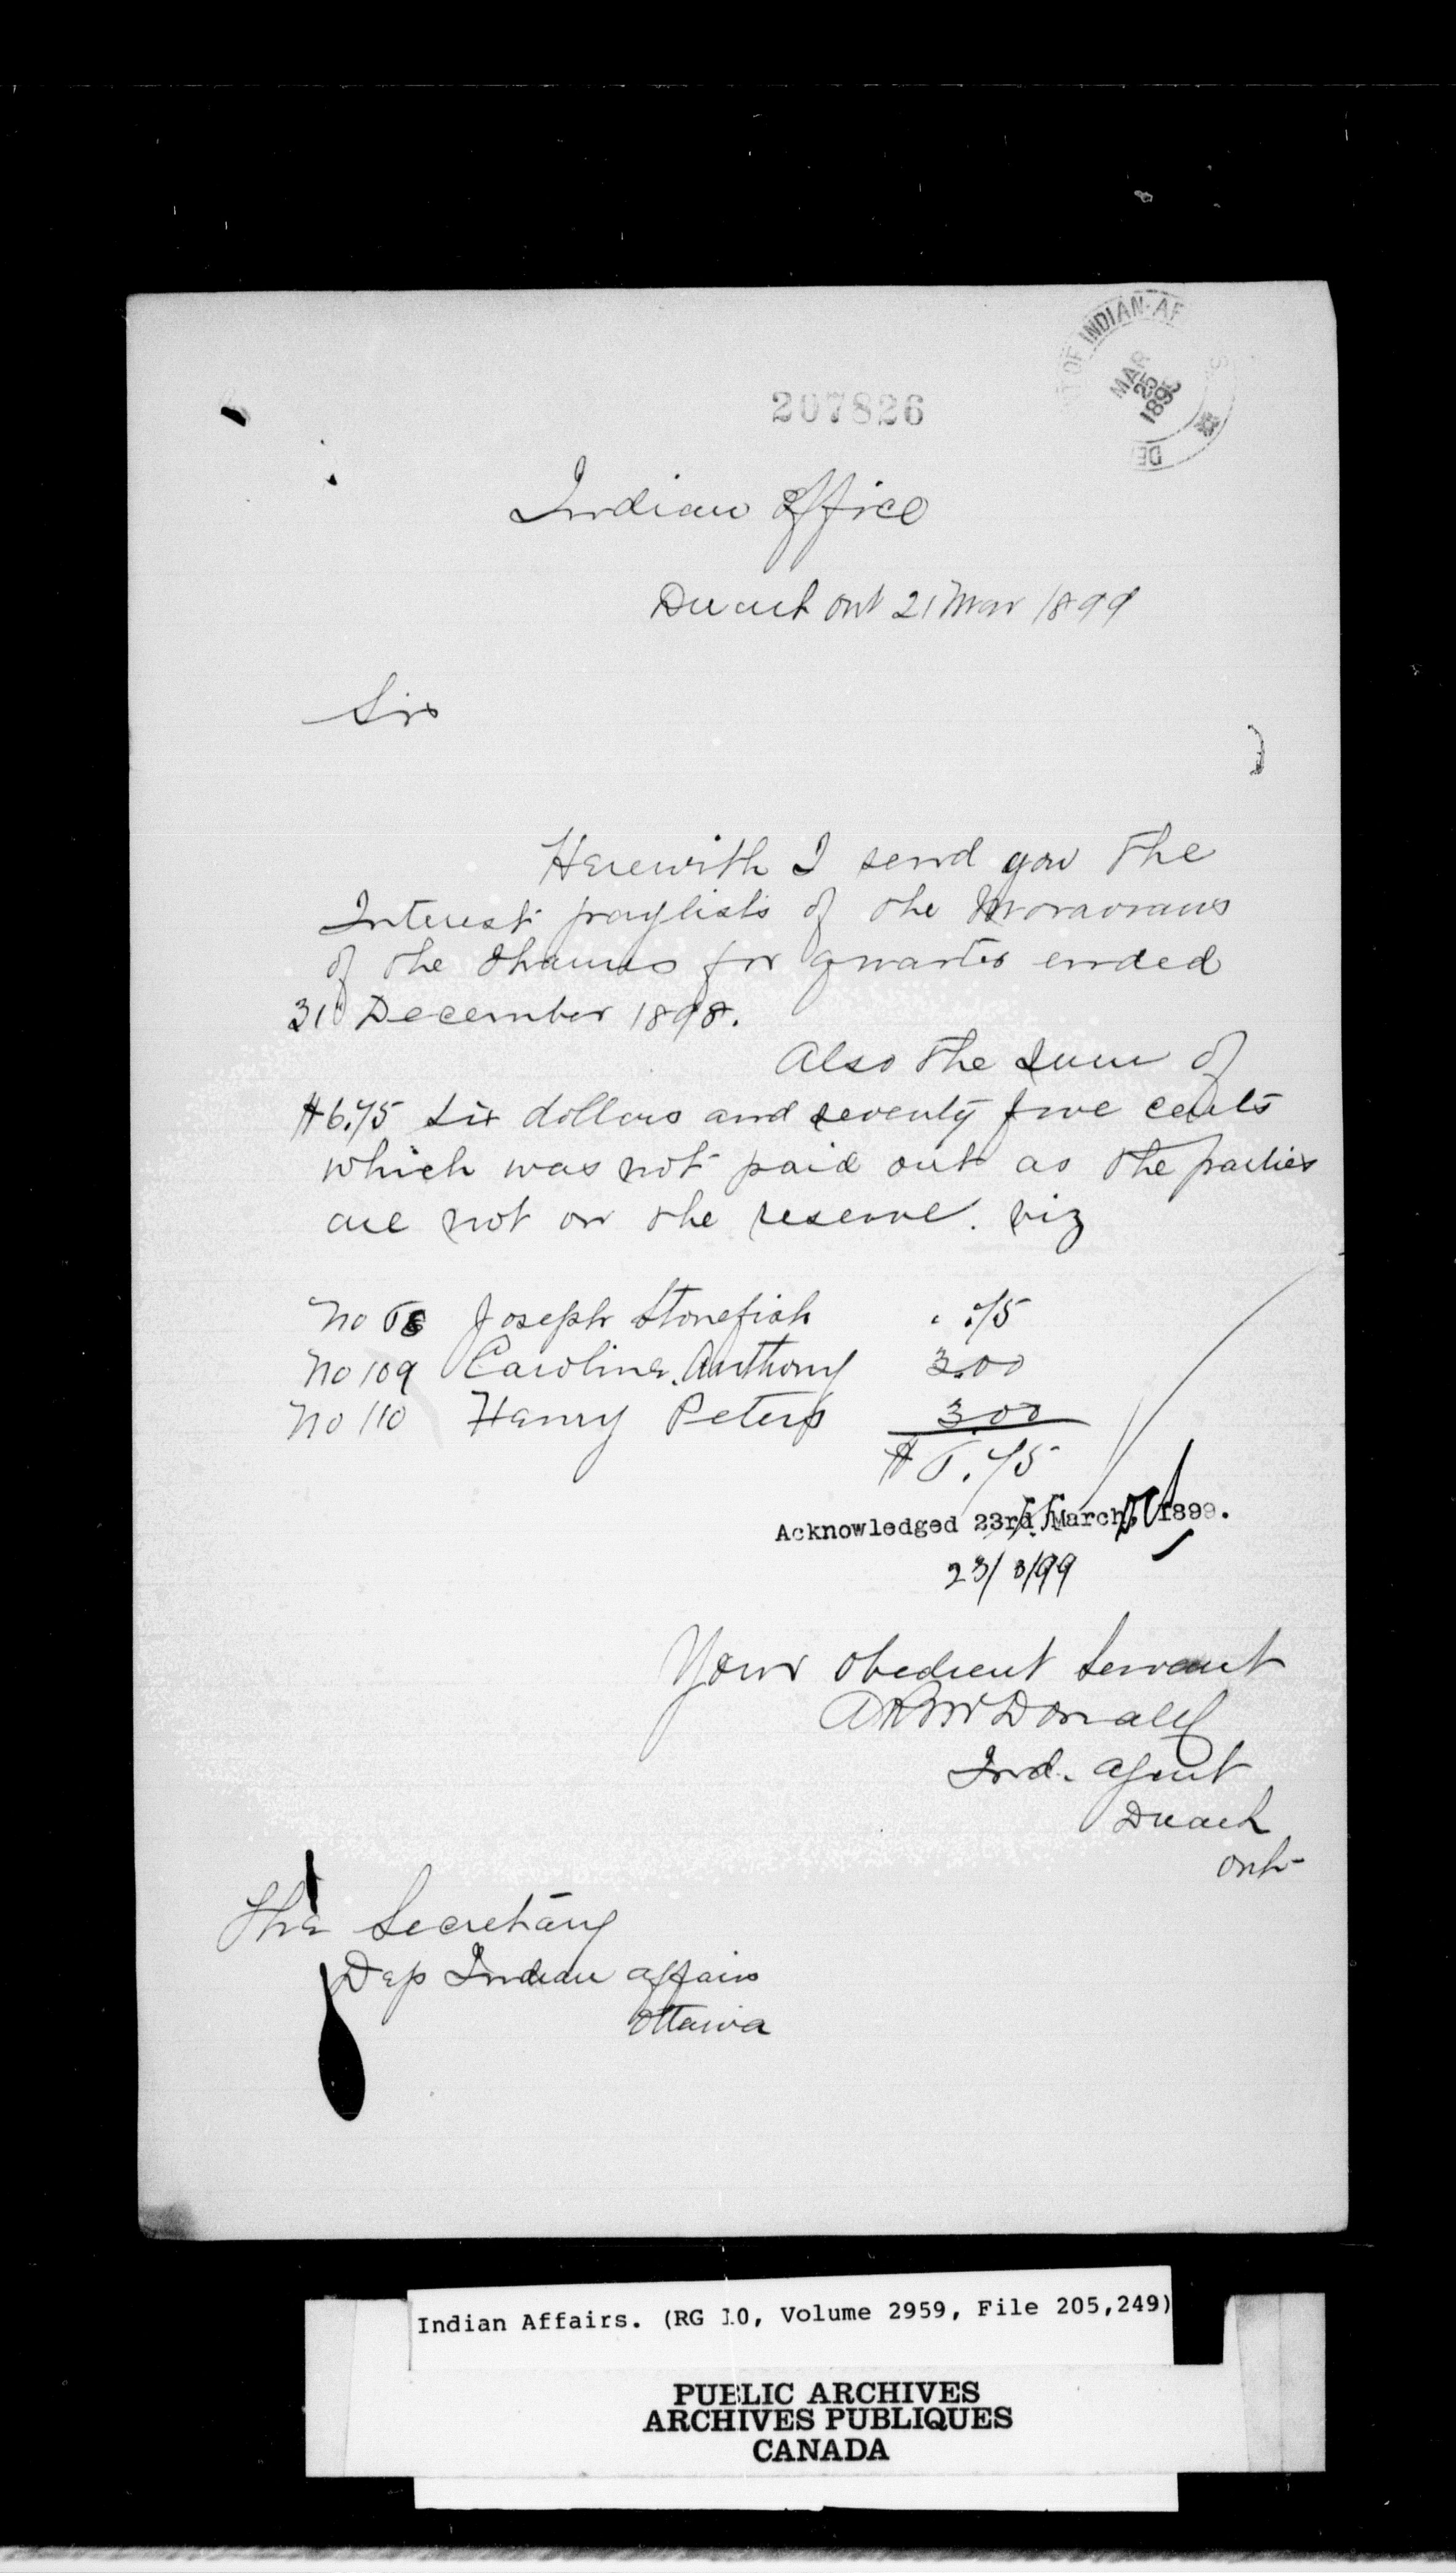 T OF INDIAN AF
S
MAR
25
189
DE
207826
Indian Office
Duart Ont 21 Mar 1899
Sir
Herewith I send you the
Interest paylists of the Moravians
of the Thames for quarter ended
31st December 1898.
Also the sum of
$6.75 six dollars and seventy five cents
which was not paid out as the parties
are not on the reserve. viz
No Joseph Stonefish . .75
No 109 Caroline Anthony 3.00
No 110 Henry Peters 3.00
$6.75
Acknowledged 23rd March, 1899.
23/3/99
Your obedient Servant
A R McDonald
Ind. Agent
Duart
Ont
The Secretary
Dep Indian Affairs
Ottawa
Indian Affairs. (RG 10, Volume 2959, File 205,249)
PUBLIC ARCHIVES
ARCHIVES PUBLIQUES
CANADA